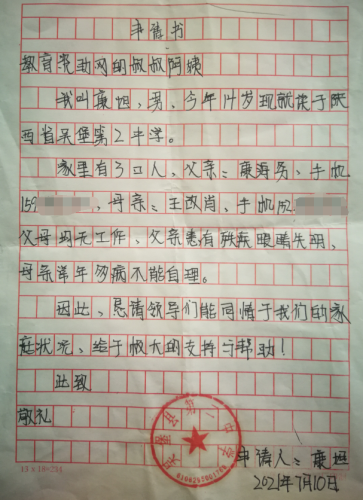 申请书
教育资助网的叔叔阿姨
我叫康坦，男、今年14岁现就读于陕
西省吴堡第2中学。
家里有3口人，父亲：康海勇、手机
159，母亲：王改肖、手机152
父母均无工作、父亲患有残疾眼睛失明、
母亲常年多病不能自理。
因此，恳请领导们能同情于我们的家
庭状况、给于极大的支持于帮助！
此致
敬礼
吴堡县第二中学
申请人：康坦
2021年7月10日
15×18=254